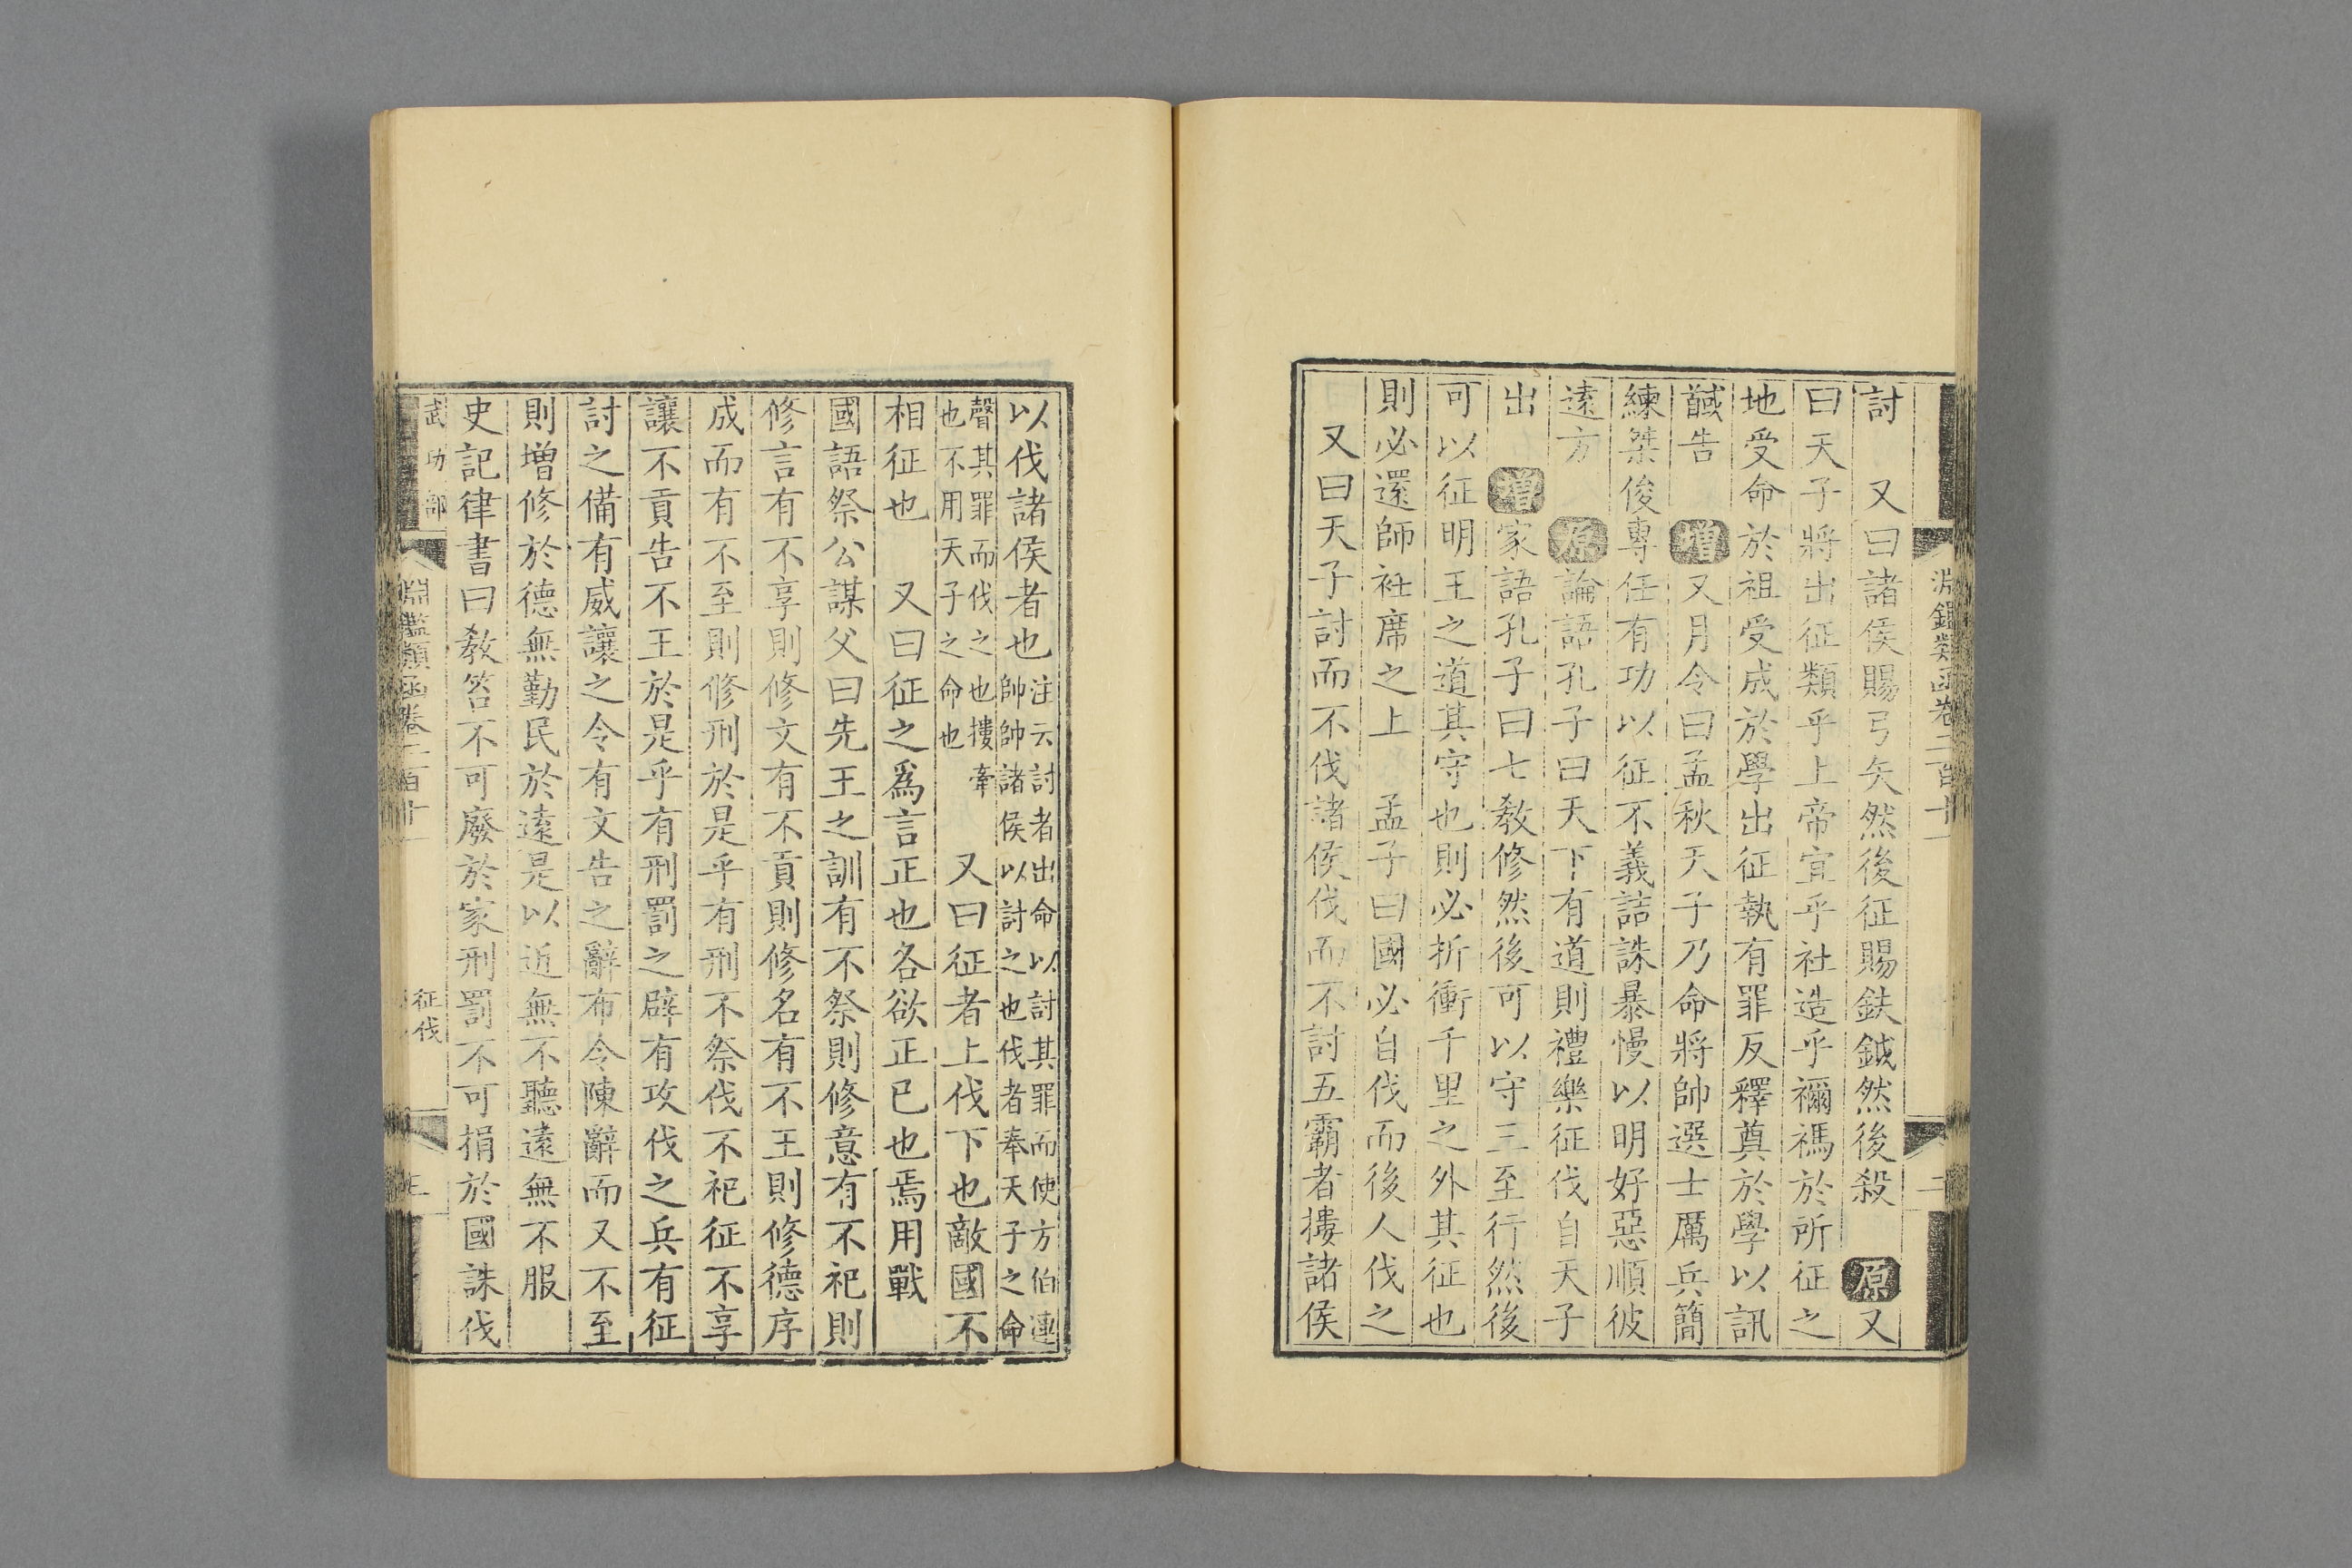 淵鑑類函卷二百十一
二
討　又曰諸侯賜弓矢然後征賜鈇鉞然後殺　原又
曰天子將出征類乎上帝宜乎社造乎禰禡於所征之
地受命於祖受成於學出征執有罪反釋奠於學以訊
馘告　增又月令曰孟秋天子乃命將帥選士厲兵簡
練桀俊專任有功以征不義詰誅暴慢以明好惡順彼
遠方　原論語孔子曰天下有道則禮樂征伐自天子
出　增家語孔子曰七教修然後可以守三至行然後
可以征明王之道其守也則必折衝千里之外其征也
則必還師衽席之上　孟子曰國必自伐而後人伐之
又曰天子討而不伐諸侯伐而不討五霸者摟諸侯
以伐諸侯者也注云討者出命以討其罪而使方伯連
帥帥諸侯以討之也伐者奉天子之命
聲其罪而伐之也摟牽
也不用天子之命也　又曰征者上伐下也敵國不
相征也　又曰征之為言正也各欲正已也焉用戰
國語祭公謀父曰先王之訓有不祭則修意有不祀則
修言有不享則修文有不貢則修名有不王則修德序
成而有不至則修刑於是乎有刑不祭伐不祀征不享
讓不貢告不王於是乎有刑罰之辟有攻伐之兵有征
討之備有威讓之令有文告之辭布令陳辭而又不至
則增修於德無勤民於遠是以近無不聽遠無不服
史記律書曰教笞不可廢於家刑罰不可捐於國誅伐
武功部
淵鑑類函卷二百十一
征伐
三